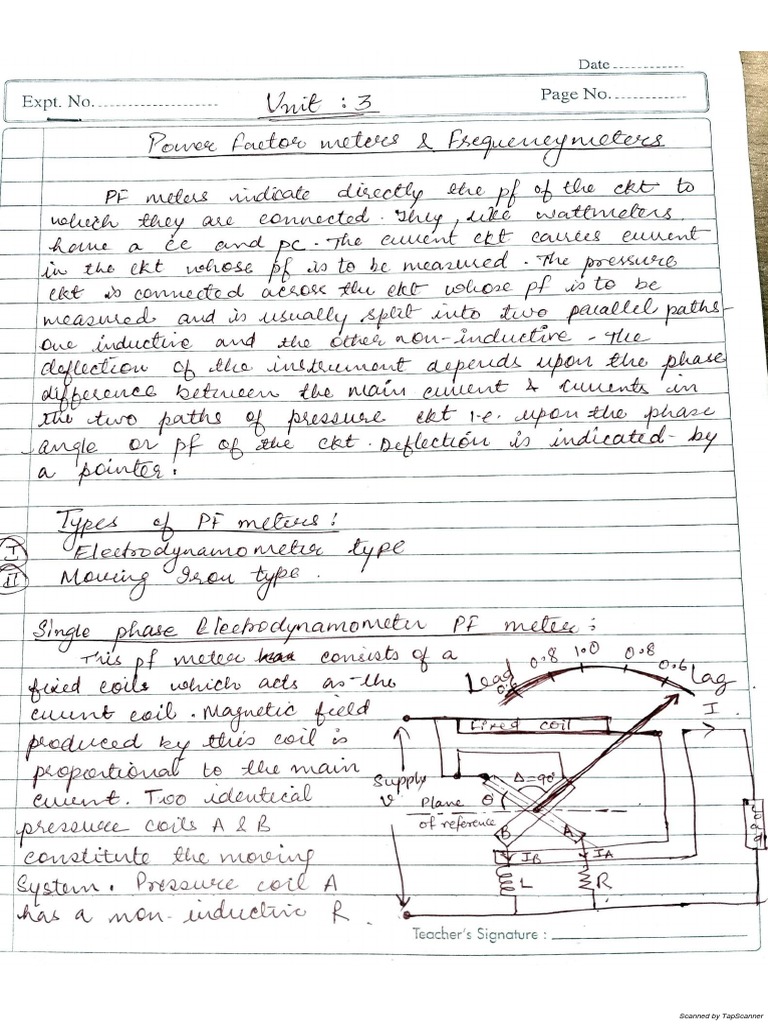 Date
Expt. No. Unit : 3 Page No.
Power factor meters & Frequencymeters
PF meters indicate directly the pf of the ckt to
which they are connected. They, like wattmeters
have a cc and pc. The current ckt carries current
in the ckt whose pf is to be measured. The pressure
ckt is connected across the ckt whose pf is to be
measured and is usually split into two parallel paths-
one inductive and the other non-inductive. The
deflection of the instrument depends upon the phase
difference between the main current & currents in
the two paths of pressure ckt i.e. upon the phase
angle or pf of the ckt. Deflection is indicated by
a pointer.
Types of PF meters:
I Electrodynamometer type
II Moving Iron type.
Single phase Electrodynamometer PF meter:
This pf meter consists of a
fixed coils which acts as the
current coil. Magnetic field
produced by this coil is
proportional to the main
current. Two identical
pressure coils A & B
constitute the moving
system. Pressure coil A
has a non-inductive R.
Lead 0.6 0.8 1.0 0.8 0.6 Lag
I
Fixed coil
Supply
V
Δ=90°
θ
Plane
of reference
B A
IB IA
L R
Load
Teacher's Signature :
Scanned by TapScanner